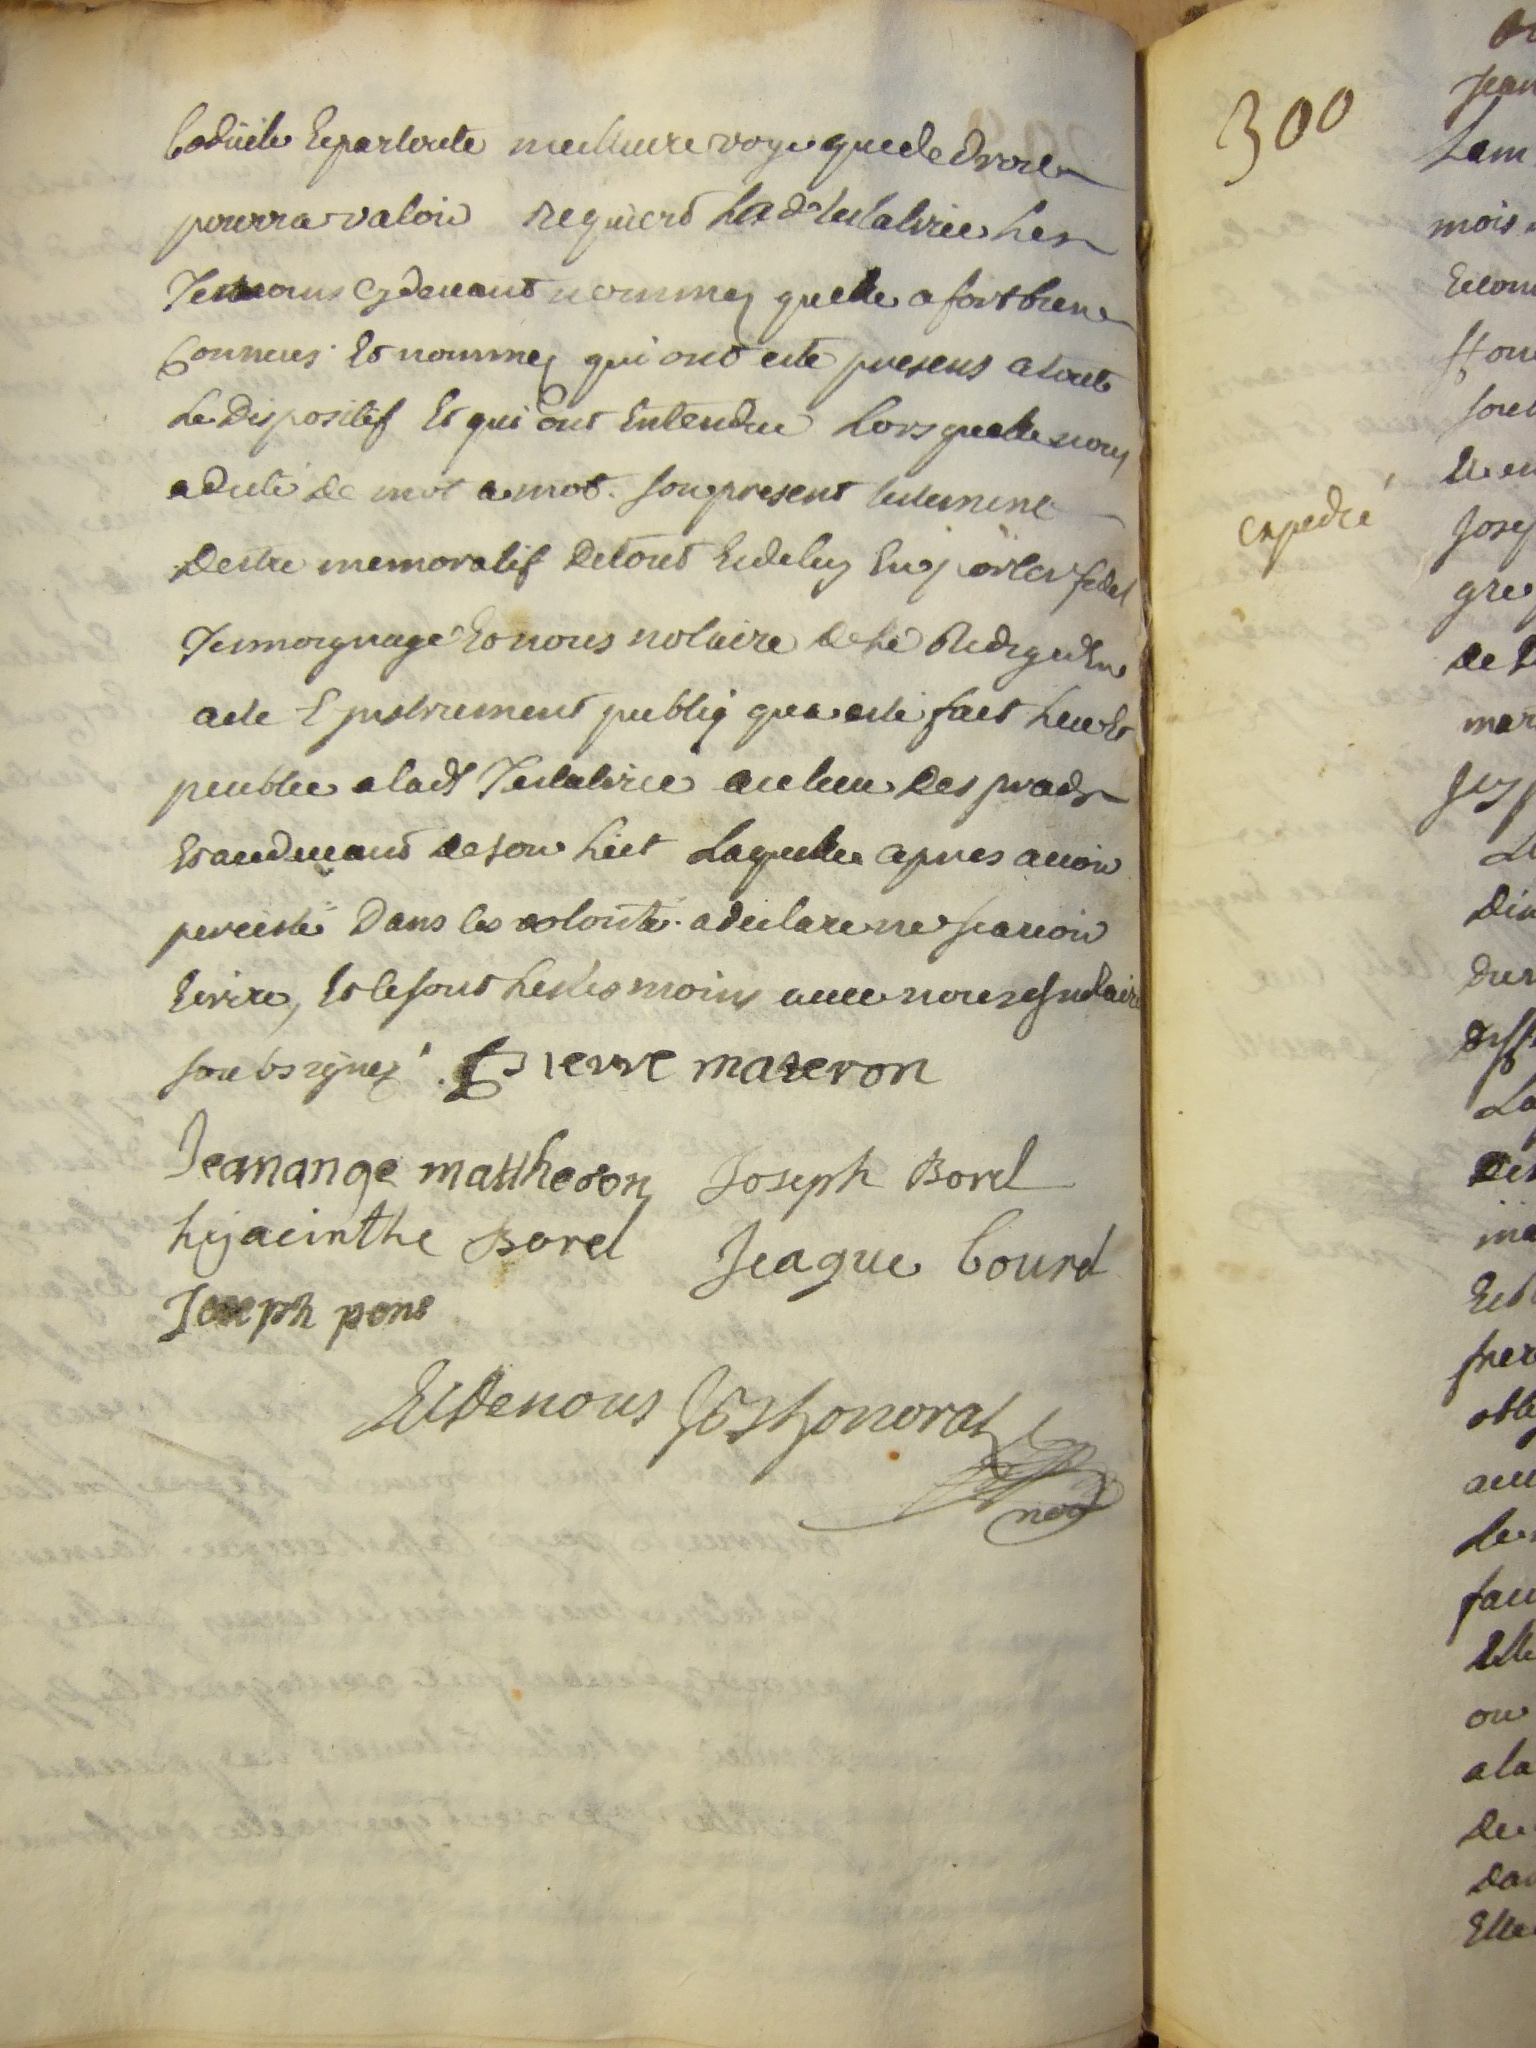 Codicile Et par toute meilleure voye que de droit
pourra valoir requiert Lad. testatrice Les
Tesmoins Cy devant nommez quelle a fort bien
Connues Et nommez qui ont esté presens a toute
Le Dispositif Et qui ont Entendu Lors quelle nous
a dicté De mot a mot son present testement
Destre memoratif De tout Et deluy En porter fidel
Tesmoignage Et nous notaire De Le Rediger En
acte E Instrument publiq que a esté fait Leu Et
publié a lad Testatrice au lieu Des prads
Et audevant de son Liet Laquelle apres avoir
percisté Dans les volonté a declare ne scavoir
Ecrire, Et le sont Les tesmoins avec nousd notaire
soubsignez Pierre materon
Jeanange mattheron Joseph Borel
hijacinthe Borel Jeaque Courd
Joseph pons
Et De nous honorat
nore
300
expedié
Jean
Lam
mois
Econ
Jose
gre
de
mar
Din
dur
La
Des
frer
obl
a la
Elle